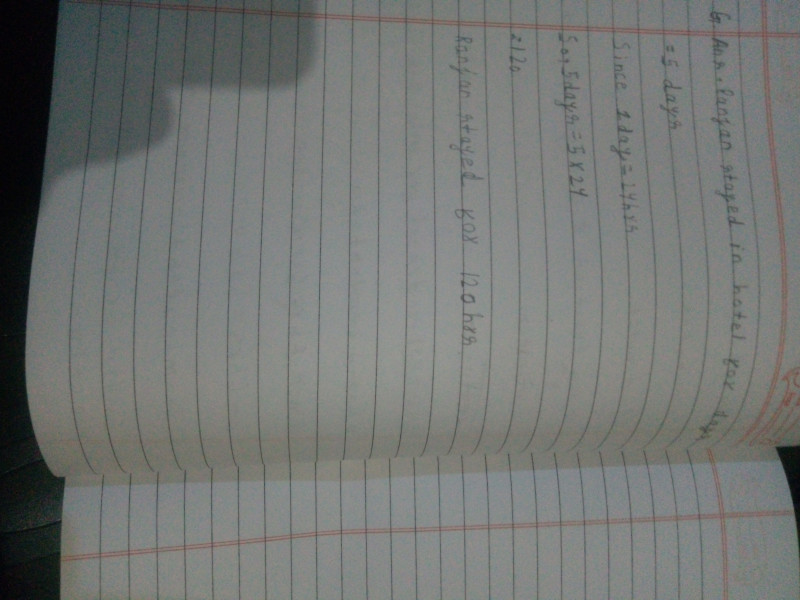 6. Ans. Ranjan stayed in hotel for days
= 5 days
Since 1 day = 24hrs
So, 5 days = 5 x 24
= 120
Ranjan stayed for 120 hrs.